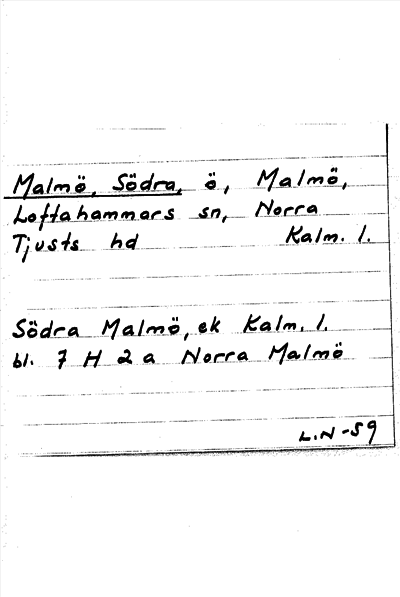 Malmö, Södra, ö, Malmö,
Loftahammars sn, Norra
Tjusts hd Kalm. l.
Södra Malmö, ek Kalm. l.
bl. 7 H 2 a Norra Malmö
L.N -59